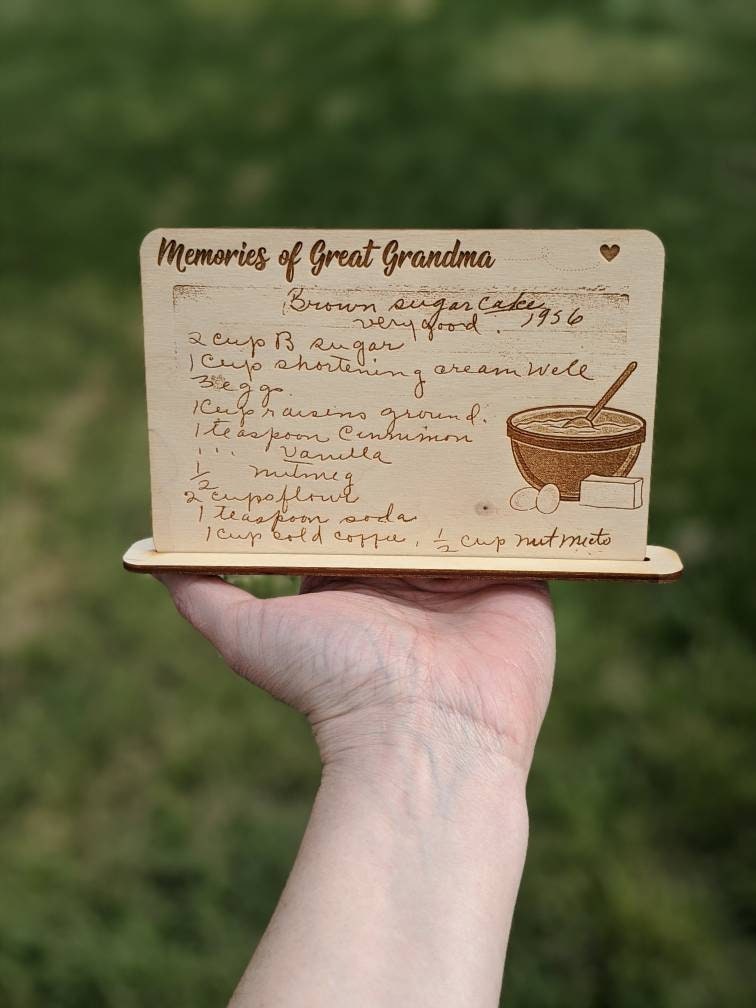 Memories of Great Grandma
Brown sugar cake 1956
very good.
2 cup B sugar
1 cup shortening cream well
3 eggs
1 cup raisins ground.
1 teaspoon Cinnimon
1 " " Vanilla
1/2 nutmeg
2 cups flour
1 teaspoon soda
1 cup cold coffee, 1/2 cup nut meets